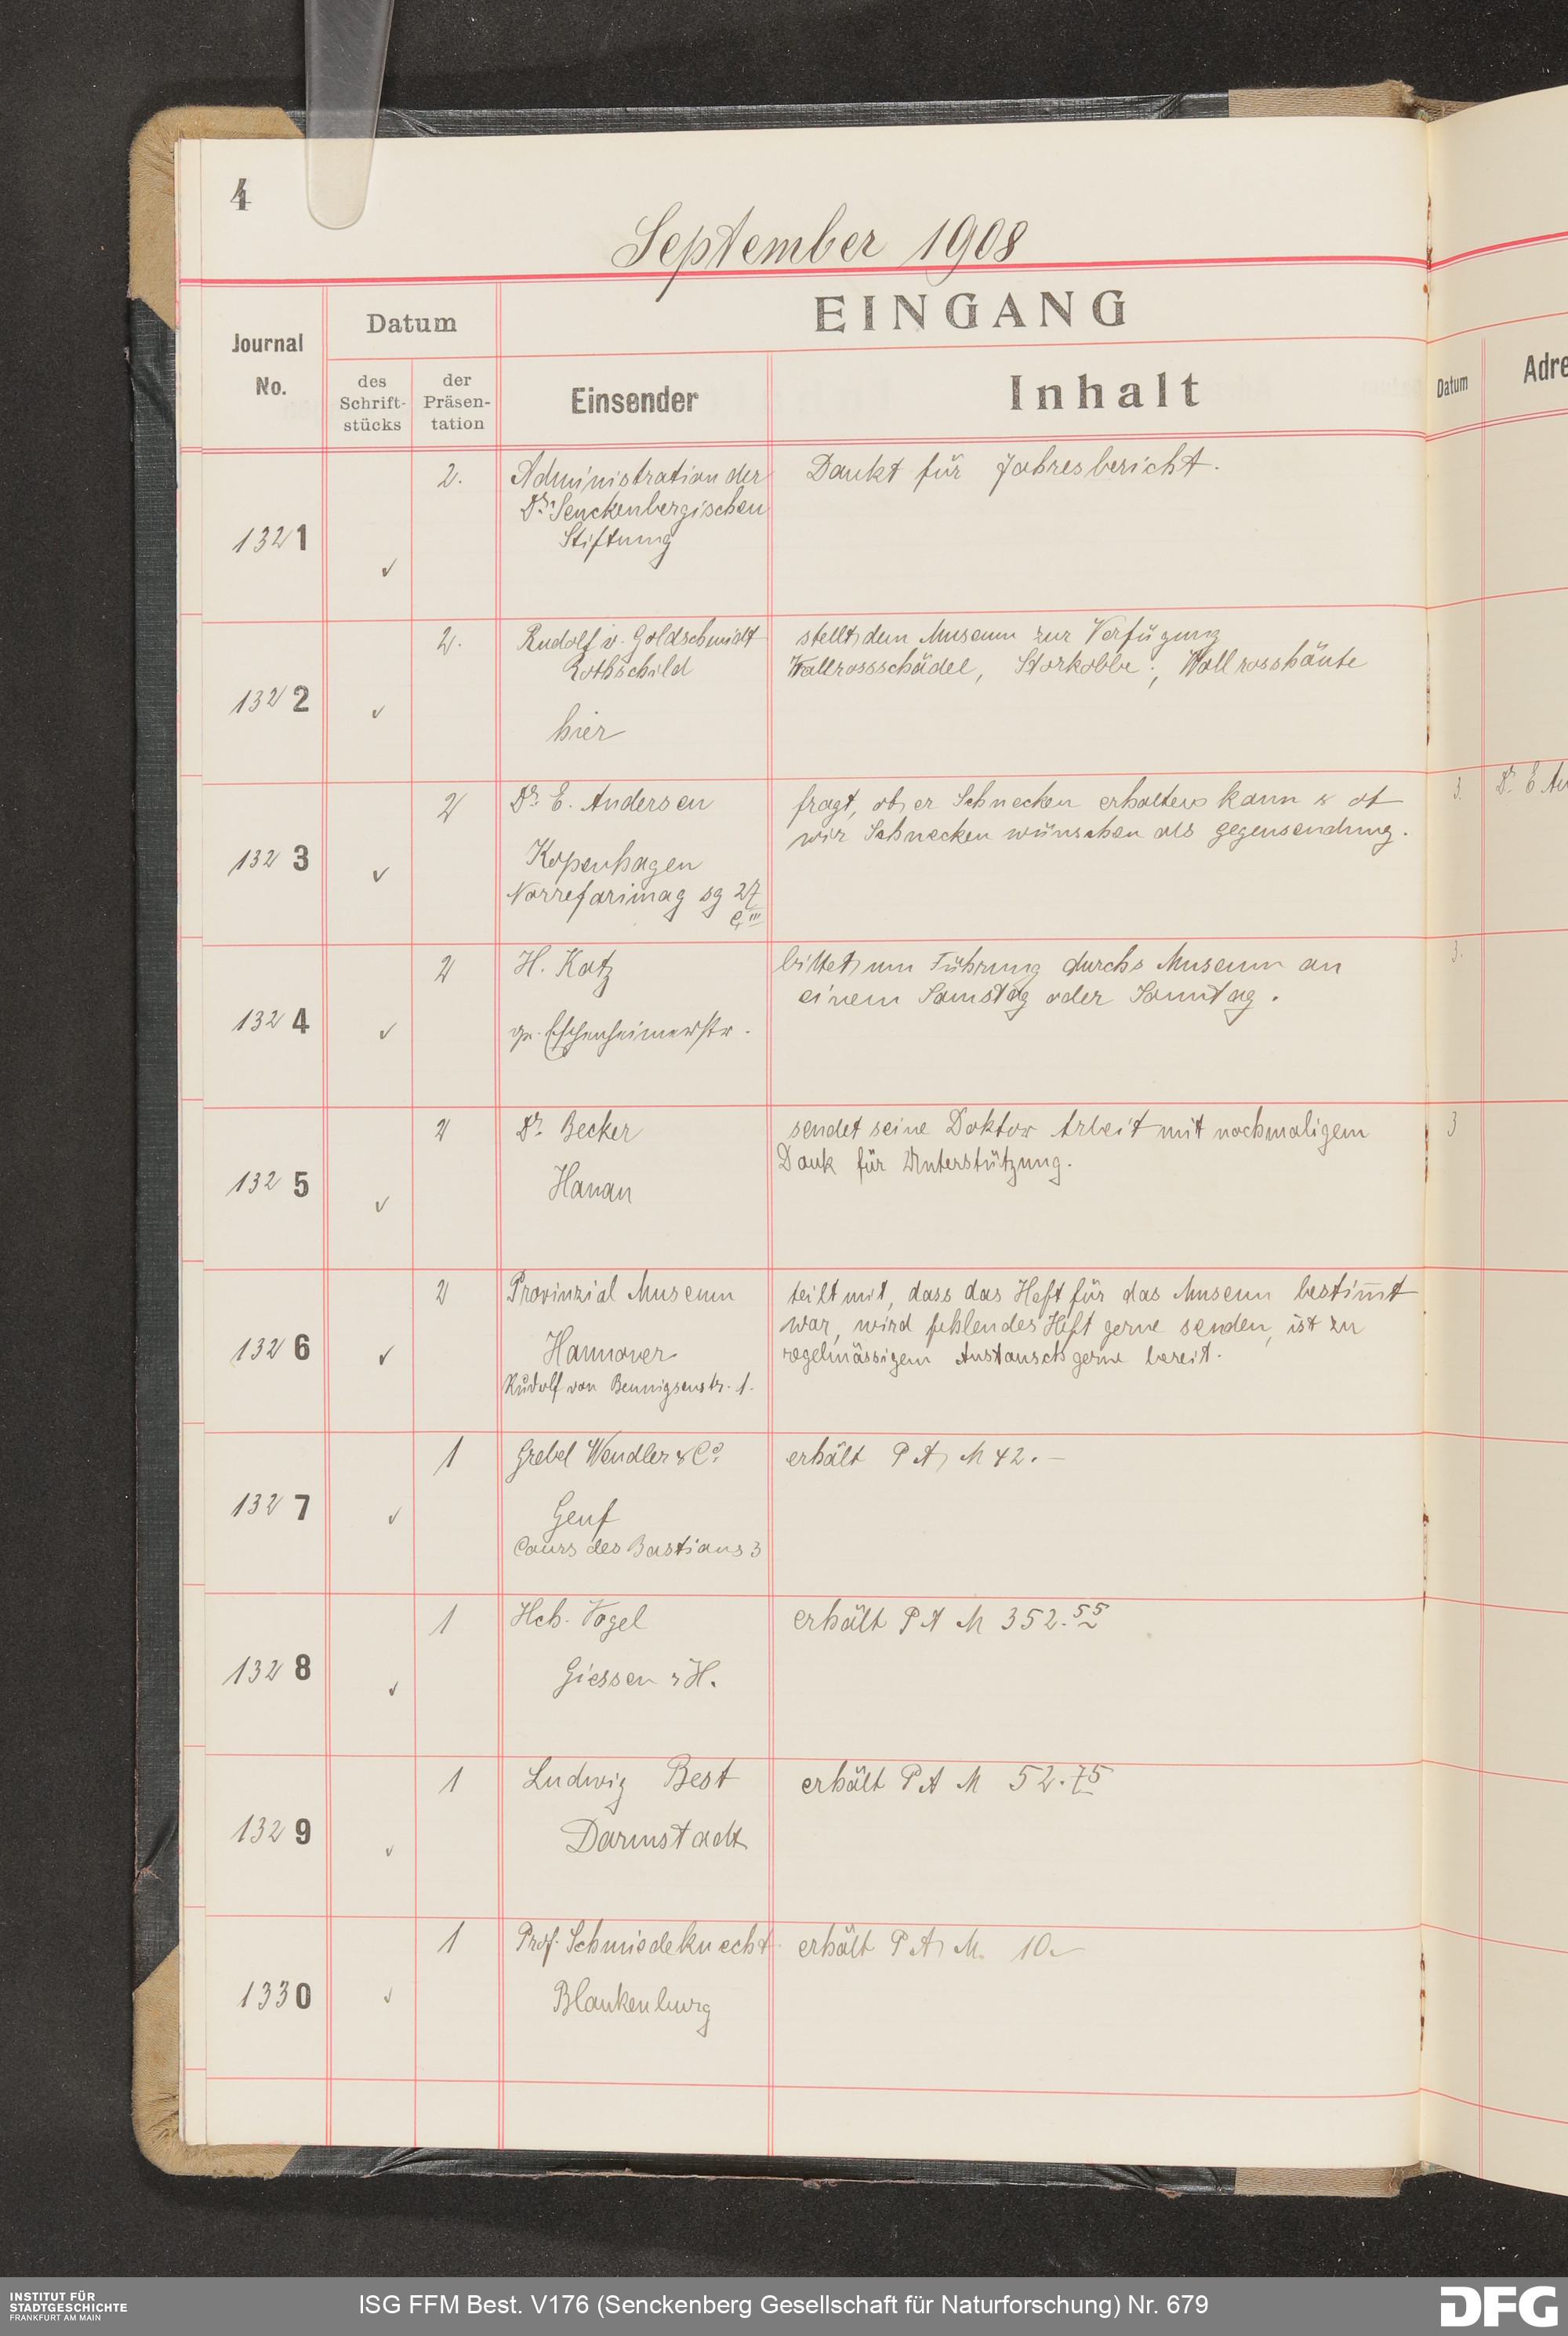 4
September 1908
EINGANG
Journal
No.
Datum
des
Schrift-
stücks
der
Präsen-
tation
Einsender
Inhalt
Datum
Adre
1321
✓
2.
Administration der
Dr. Senckenbergischen
Stiftung
Dankt für Jahresbericht.
1322
✓
2.
Rudolf v. Goldschmidt
Rothschild
hier
stellt dem Museum zur Verfügung
Wallrossschädel, Storkobbe, Wallrosshäute
1323
✓
2
Dr. E. Andersen
Kopenhagen
Norrefarimag sg 27
fragt, ob er Schnecken erhalten kann & ob
wir Schnecken wünschen als Gegensendung.
3.
Dr. E. An
1324
✓
2
H. Katz
gr. Eschenheimerstr.
bittet um Führung durchs Museum an
einem Samstag oder Sonntag.
3.
1325
✓
2
Dr. Becker
Hanau
sendet seine Doktor Arbeit mit nochmaligem
Dank für Unterstützung.
3
1326
✓
2
Provinzial Museum
Hannover
Rudolf von Bennigsenstr. 1.
teilt mit, dass das Heft für das Museum bestim̅t
war, wird fehlendes Heft gerne senden, ist zu
regelmässigem Austausch gerne bereit.
1327
✓
1
Grebel Wendler & Co.
Genf
Cours des Bastians 3
erhält P A M 42.—
1328
✓
1
Hch. Vogel
Giessen i/H.
erhält P A M 352.55
1329
✓
1
Ludwig Best
Darmstadt
erhält P A M 52.75
1330
✓
1
Prof. Schmiedeknecht
Blankenburg
erhält P A M. 10.—
INSTITUT FÜR
STADTGESCHICHTE
FRANKFURT AM MAIN
ISG FFM Best. V176 (Senckenberg Gesellschaft für Naturforschung) Nr. 679
DFG